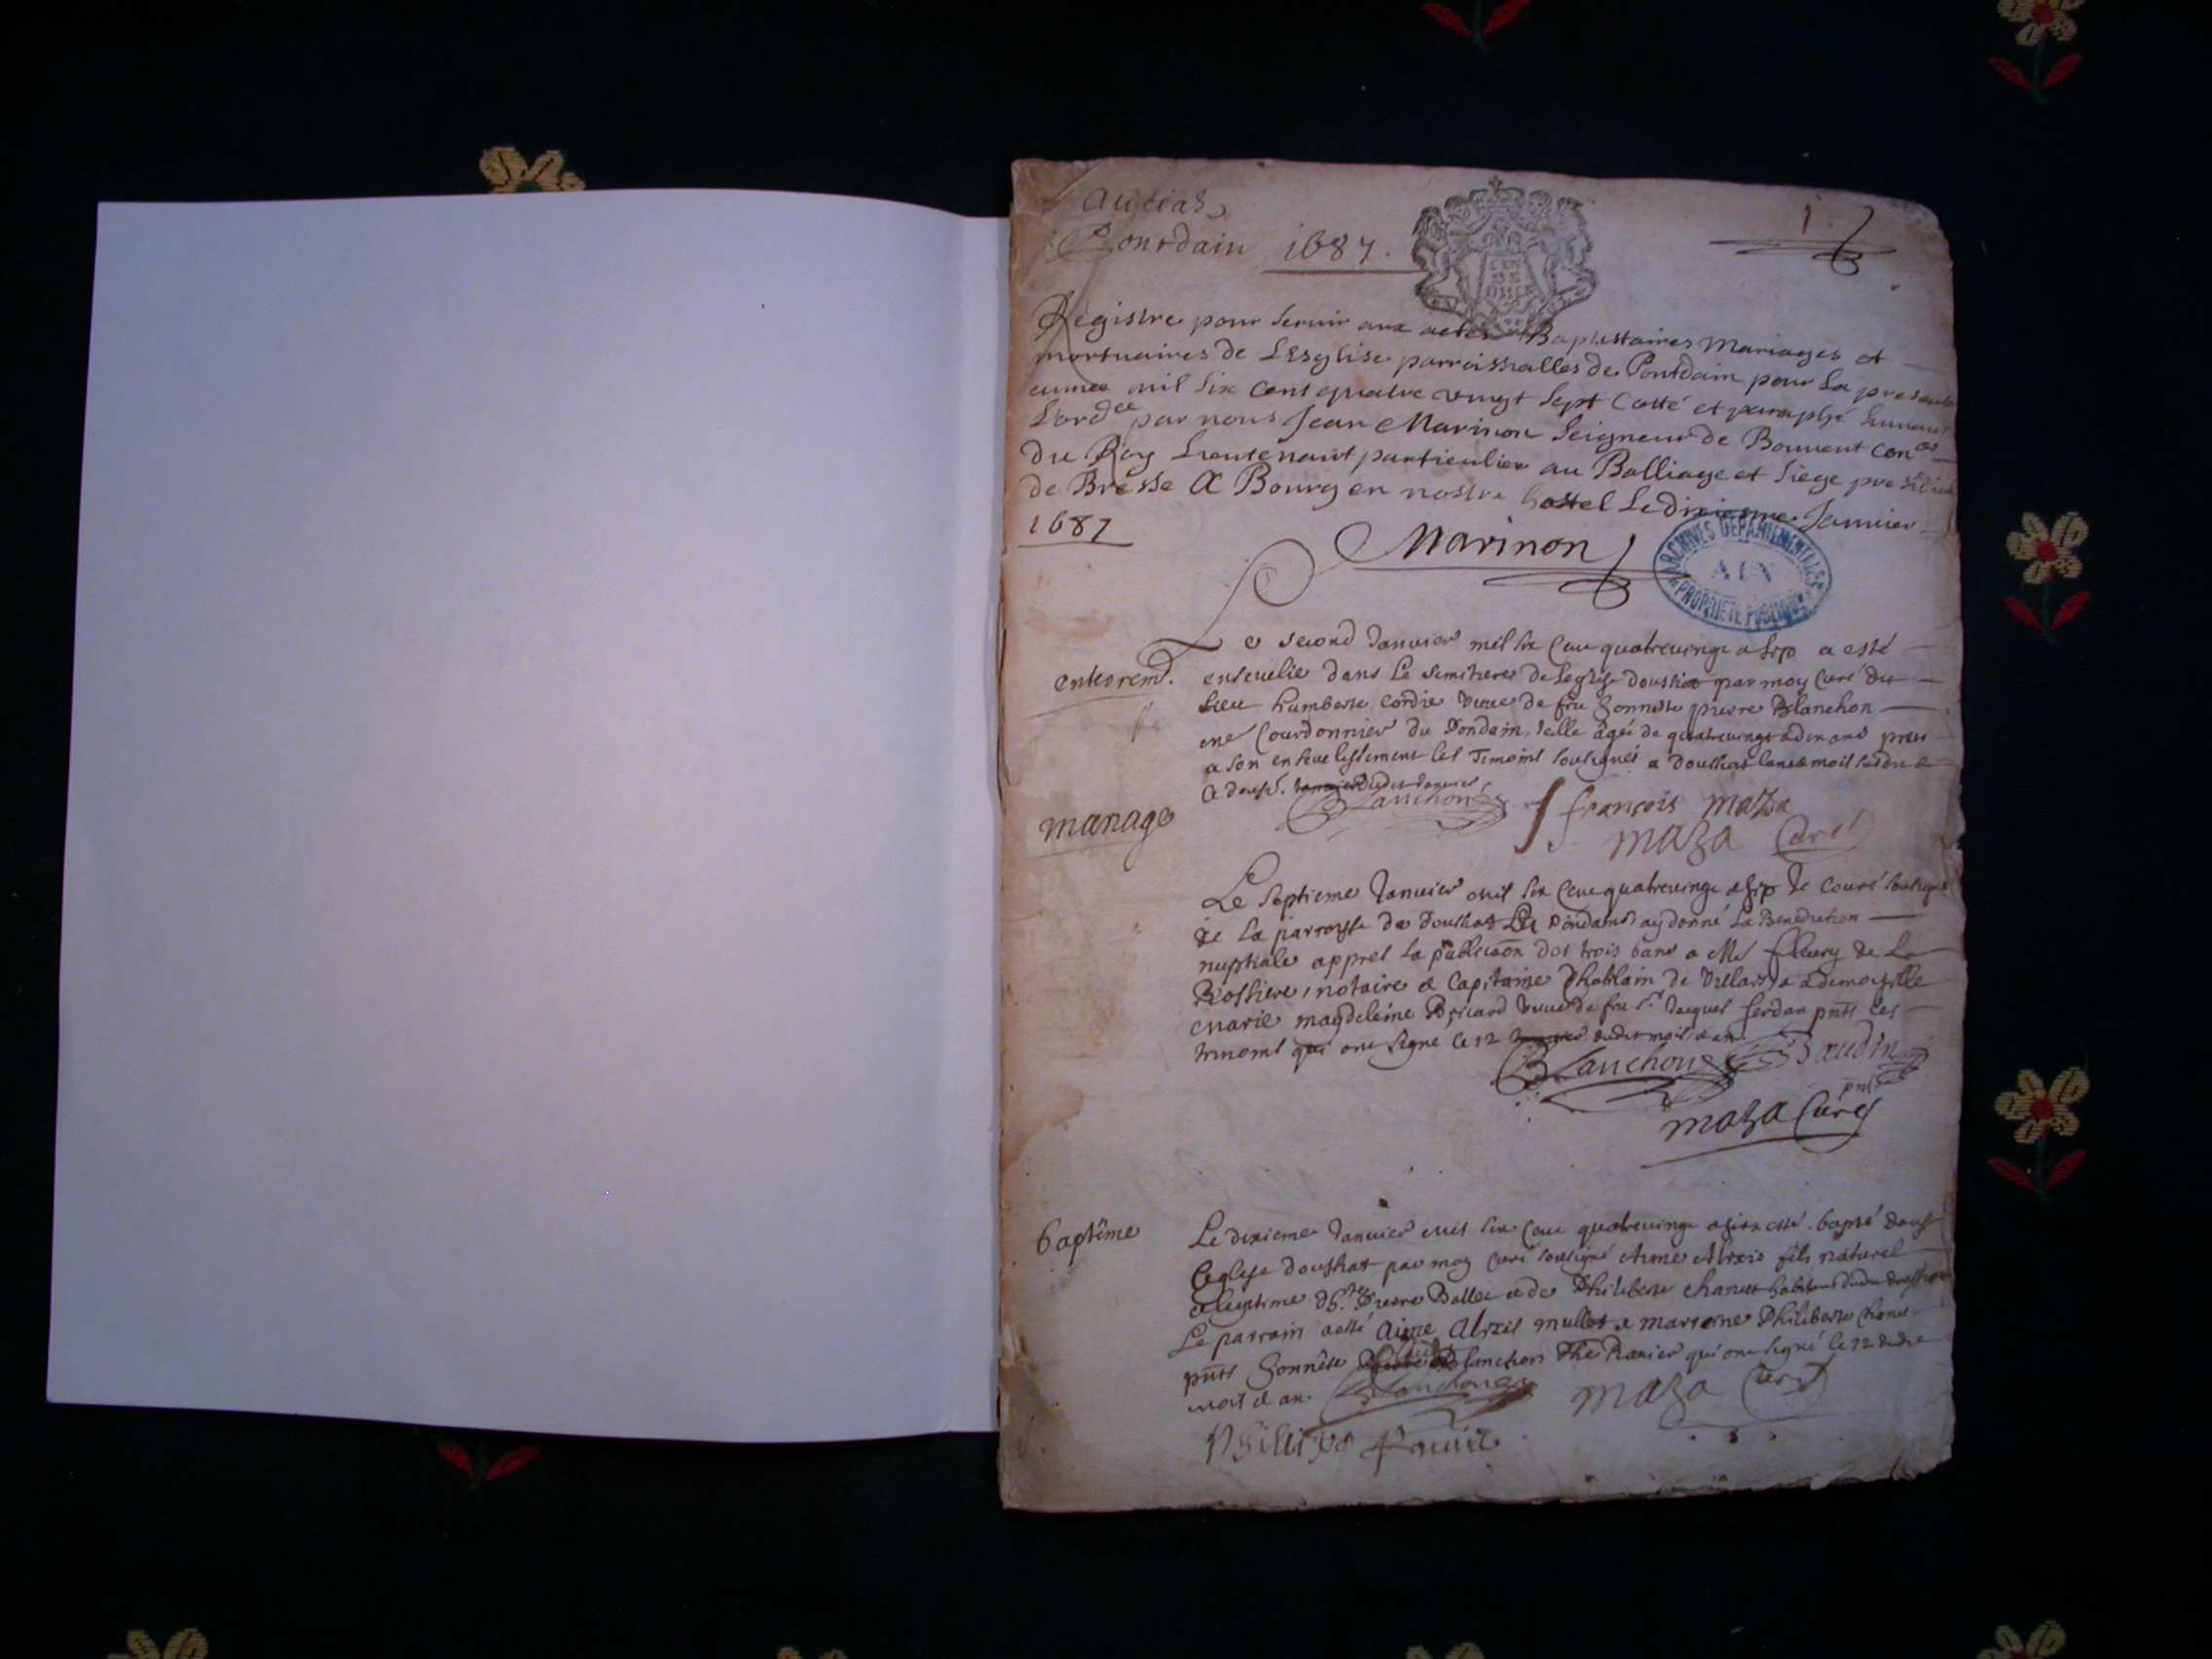 Pontdain 1687.
1
Registre pour Servir aux actes Baptistaires Mariages et
mortuaires de LEsglise parroissialles de Pontdain pour La presente
annee mil Six Cent quatre vingt Sept Cotté et paraphé suivant
Lord.ce par nous Jean Marinon Seigneur de Bouvent con.er
du Roy Lieutenant particulier au Balliage et Siege presidial
de Bresse A Bourg en nostre hostel Le dixiesme Janvier
1687
Marinon
ARCHIVES DEPARTEMENTALES
AIN
PROPRIETE PUBLIQUE
enterrem.t
Le second Janvier mil six cen quatrevingt a sep a esté
ensevelie dans Le Semitiere de Leglise doustiat par moy Curé du
Lieu humberte Cordie veuve de feu honneste pierre Blanchon
me Courdonnier du Pondain, agée de quatrevingt a dix ans
a son ensevelissement Les Temoins Soubsignés a
Blanchon
françois maza
maza Curé
mariage
Le Septieme Janvier mil six Cen quatrevingt a sep Je Couré
de La parroisse de Doustiat Les Pondain ay donné La Benediction
nuptiale apprés La publication des trois bans a Me fleury de La
Rossiere, notaire & Capitaine Chastelain de Villars & a demoiselle
marie magdeleine Bricard veuve de feu Sr Jacques ferdan pnts Les
temoins qui ont signé Ce 12 dudit mois & an.
Blanchon
Baudin
pnt
maza Curé
baptême
Le dixieme Janvier mil six Cen quatrevingt a sep a esté baptisé dans
Leglise doustiat par moy Curé soubsigné Aimé Alexis fils naturel
& legitime Pierre Ballet & de Philiberte Chanet
Le parrain a esté Aimé Alexis mullet & marrene Philiberte Chanet
pnts honnête Blanchon Phe Ravier qui ont signé le 12 dudit
mois & an.
Blanchon
maza Curé